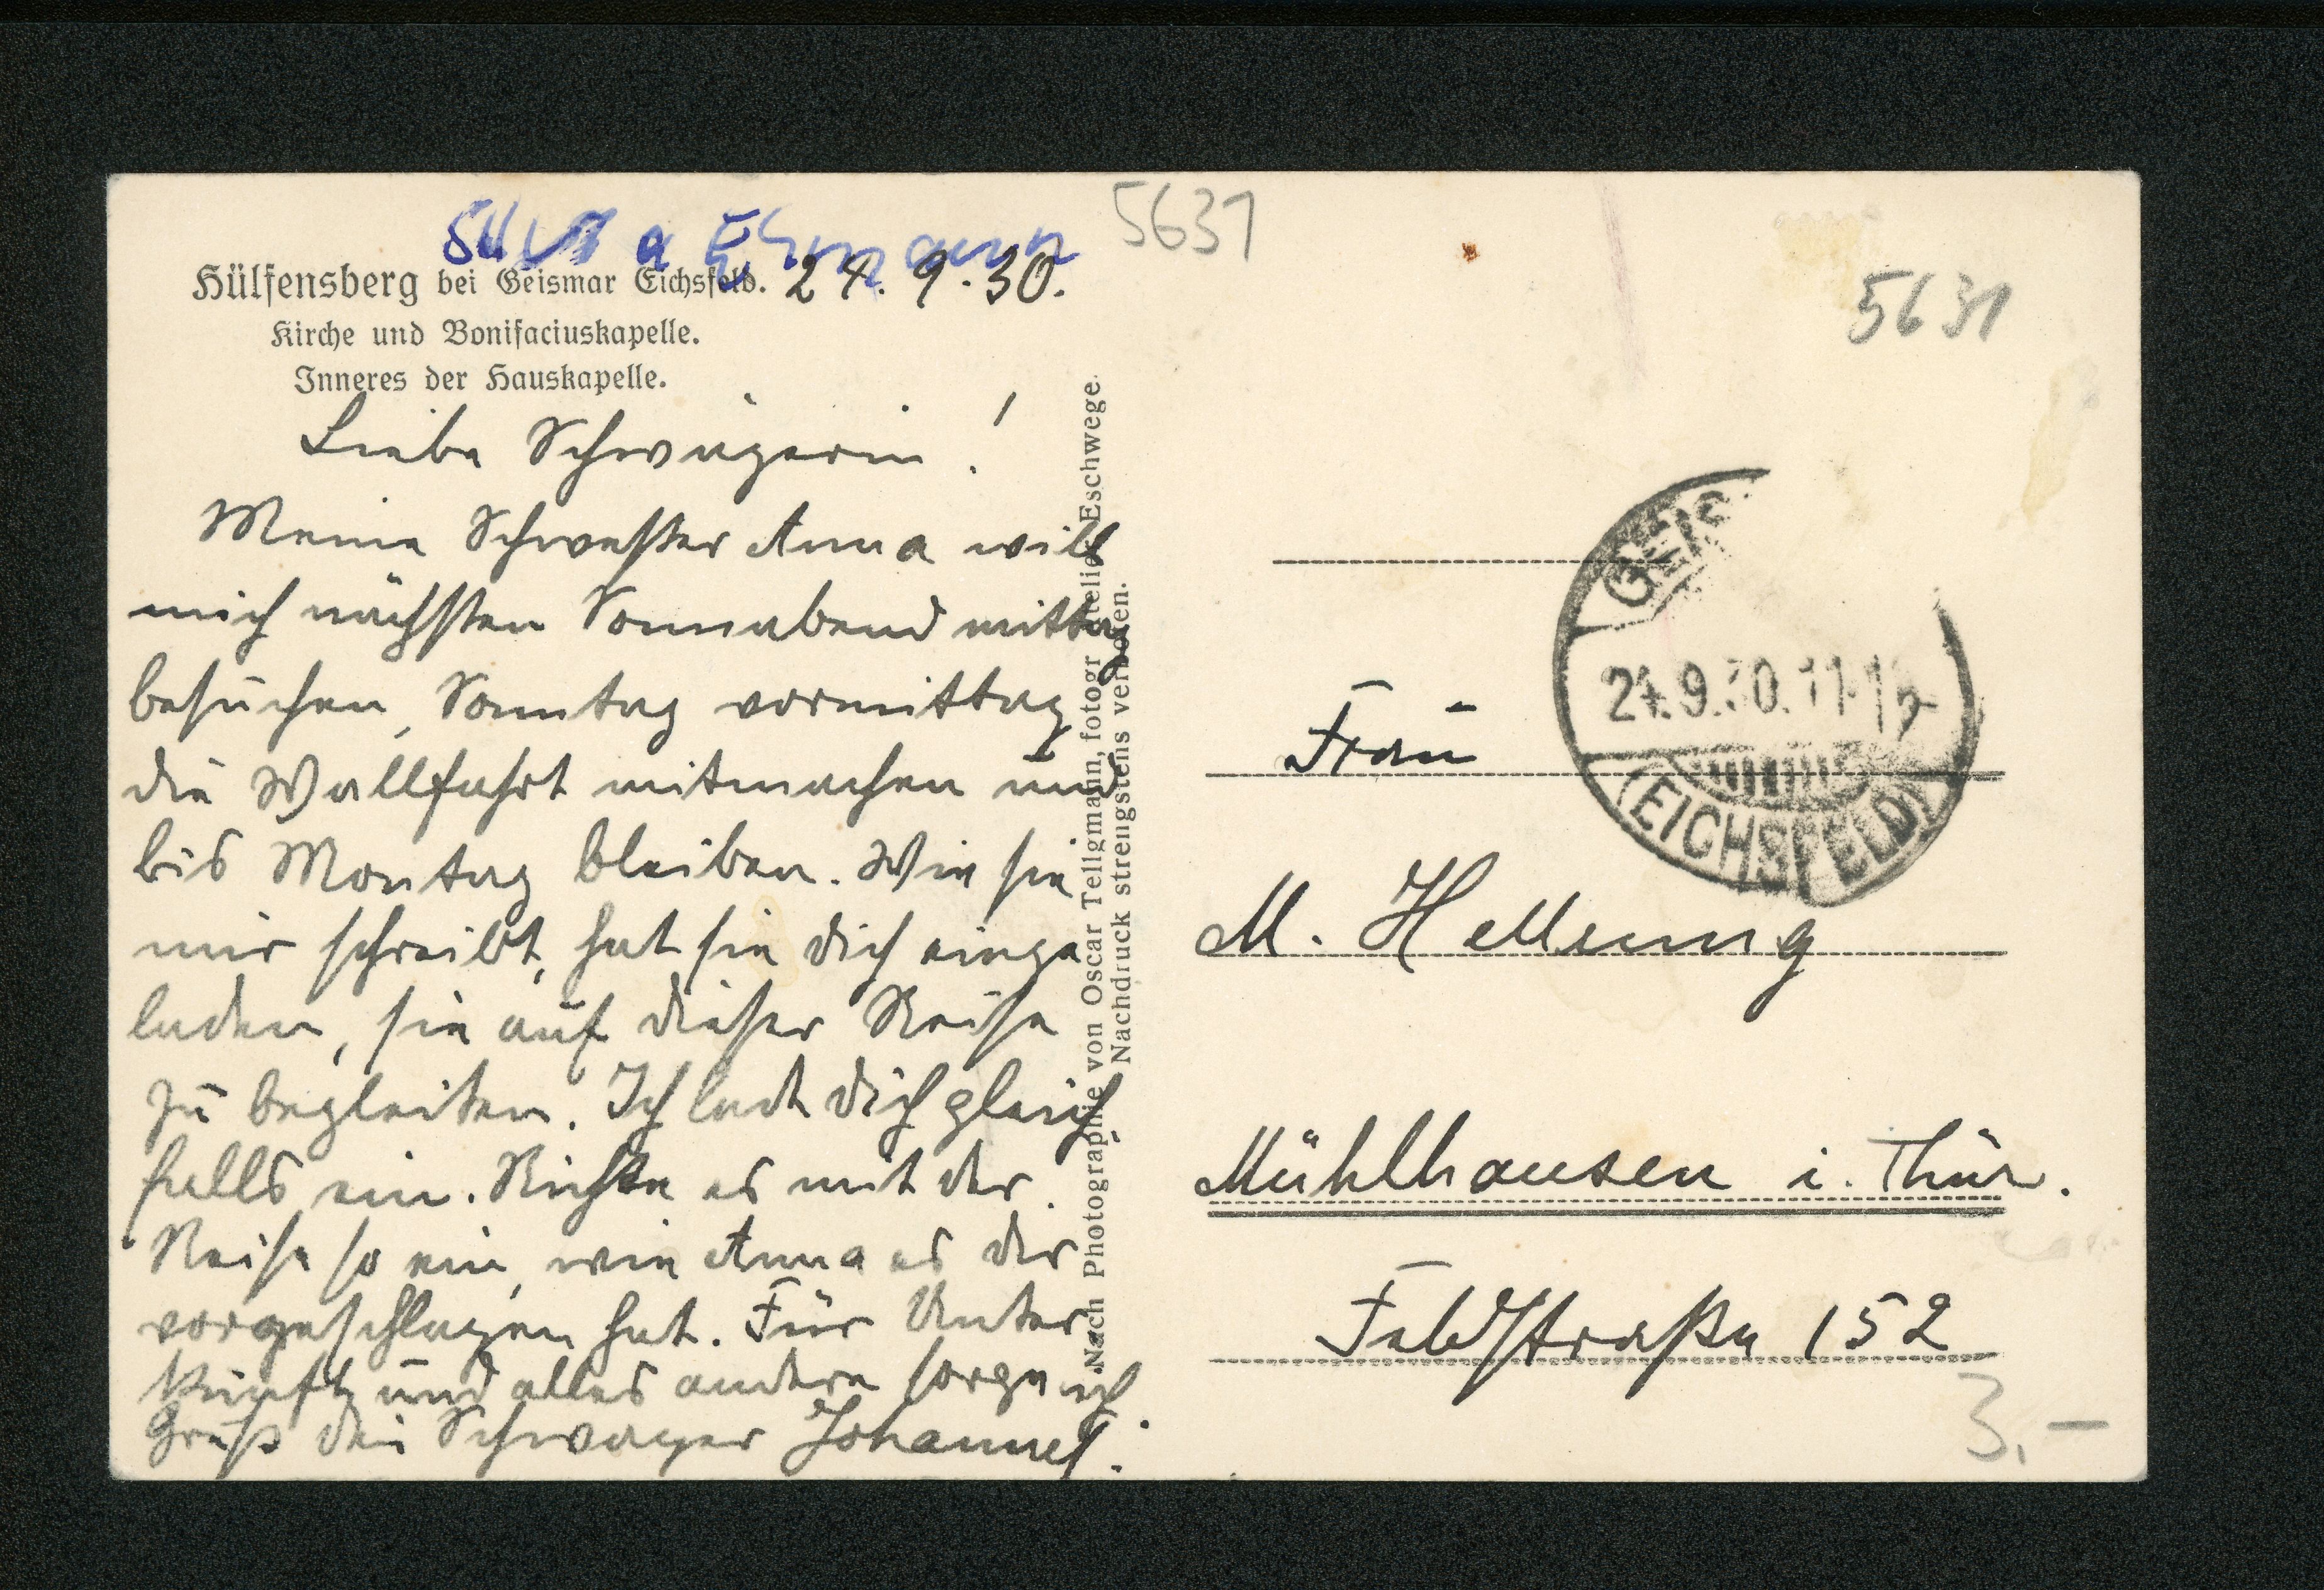 5631
5631
Hülfensberg bei Geismar Eichsfeld. 24. 9. 30.
Kirche und Bonifaciuskapelle.
Inneres der Hauskapelle.
Liebe Schwägerin!
Meine Schwester Anna will
mich nächsten Sonnabend mittag
besuchen, Sonntag vormittag
die Wallfahrt mitmachen und
bis Montag bleiben. Wie sie
mir schreibt, hat sie dich einge
laden, sie auf dieser Reise
zu begleiten. Ich lade dich gleich
falls ein. Richte es mit der
Reise so ein, wie Anna es dir
vorgeschlagen hat. Für Unter
kunft und alles andere sorge ich.
Gruß dein Schwager Johannes.
Nach Photographie von Oscar Tellgmann, fotogr Atelier Eschwege.
Nachdruck strengstens verboten.
GEIS
24.9.30.11-12
(EICHSFELD)
Frau
M. Hellsung
Mühlhausen i. Thür.
Feldstraße 152
3.-